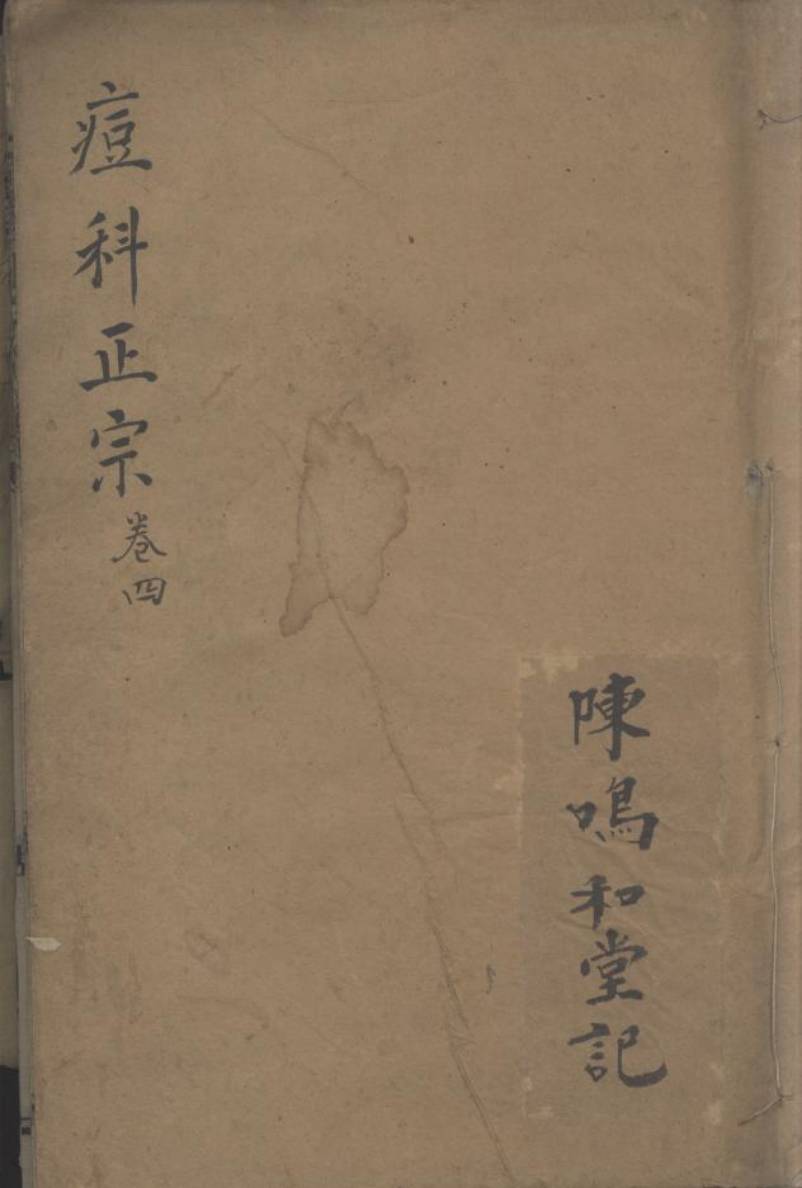 陳鳴和堂記
痘科正宗卷四